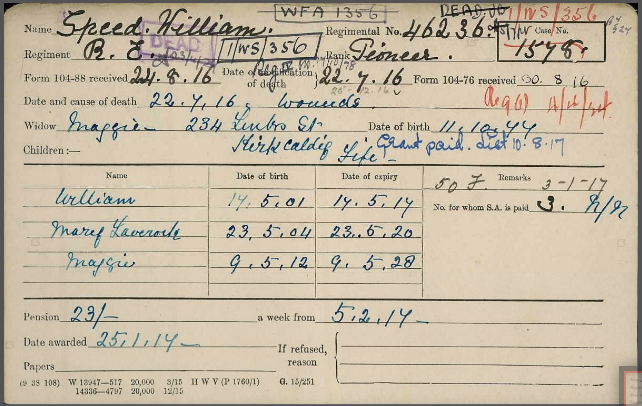 WFA 1356
DEAD 1/WS/356
Name Speed. William. Regimental No. 46236
Regiment R. E. DEAD 1/WS/356 Rank Pioneer. Case No. 1578
Form 104-88 received 24.8.16 Date of notification of death 22.7.16 Form 104-76 received 30.8.16
Date and cause of death 22.7.16. Wounds
Widow Maggie 234 Links St. Date of birth 11.10.77
Children:— Kirkcaldy Fife Grant paid. List 10.8.17
Name Date of birth Date of expiry 50 F. Remarks 3-1-17
William 14.5.01 14.5.17 No. for whom S.A. is paid 3.
Mary Laverock 23.5.04 23.5.20
Maggie 9.5.12 9.5.28
Pension 23/- a week from 5.2.17
Date awarded 25.1.17
If refused, reason
Papers
(9 38 108) W 13947—517 20,000 3/15 H W V (P 1760/1) G. 15/251
14336—4797 20,000 12/15